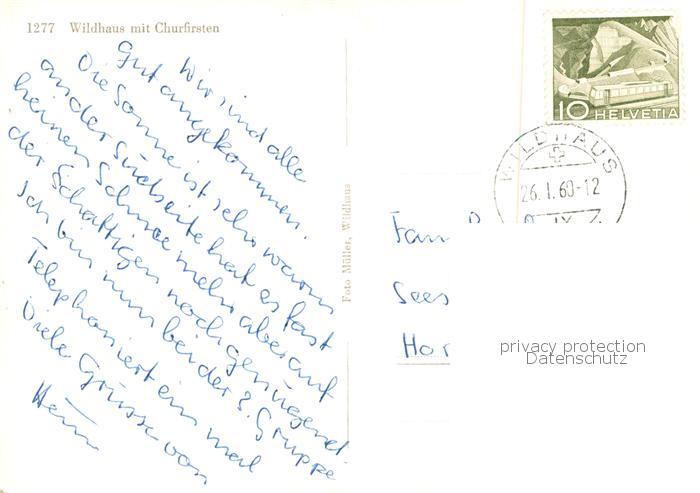 1277 Wildhaus mit Churfirsten
Wir sind alle
gut angekommen.
Die Sonne ist sehr warm
an der Südseite hat es fast
keinen Schnee mehr aber auf
der Schattigen noch genügend.
Ich bin nun bei der 3. Gruppe
Telephoniert ein mal
Viele Grüsse von
Foto Müller, Wildhaus
10 HELVETIA
WILDHAUS
26.I.60-12
Fam
Sees
Hor
privacy protection
Datenschutz